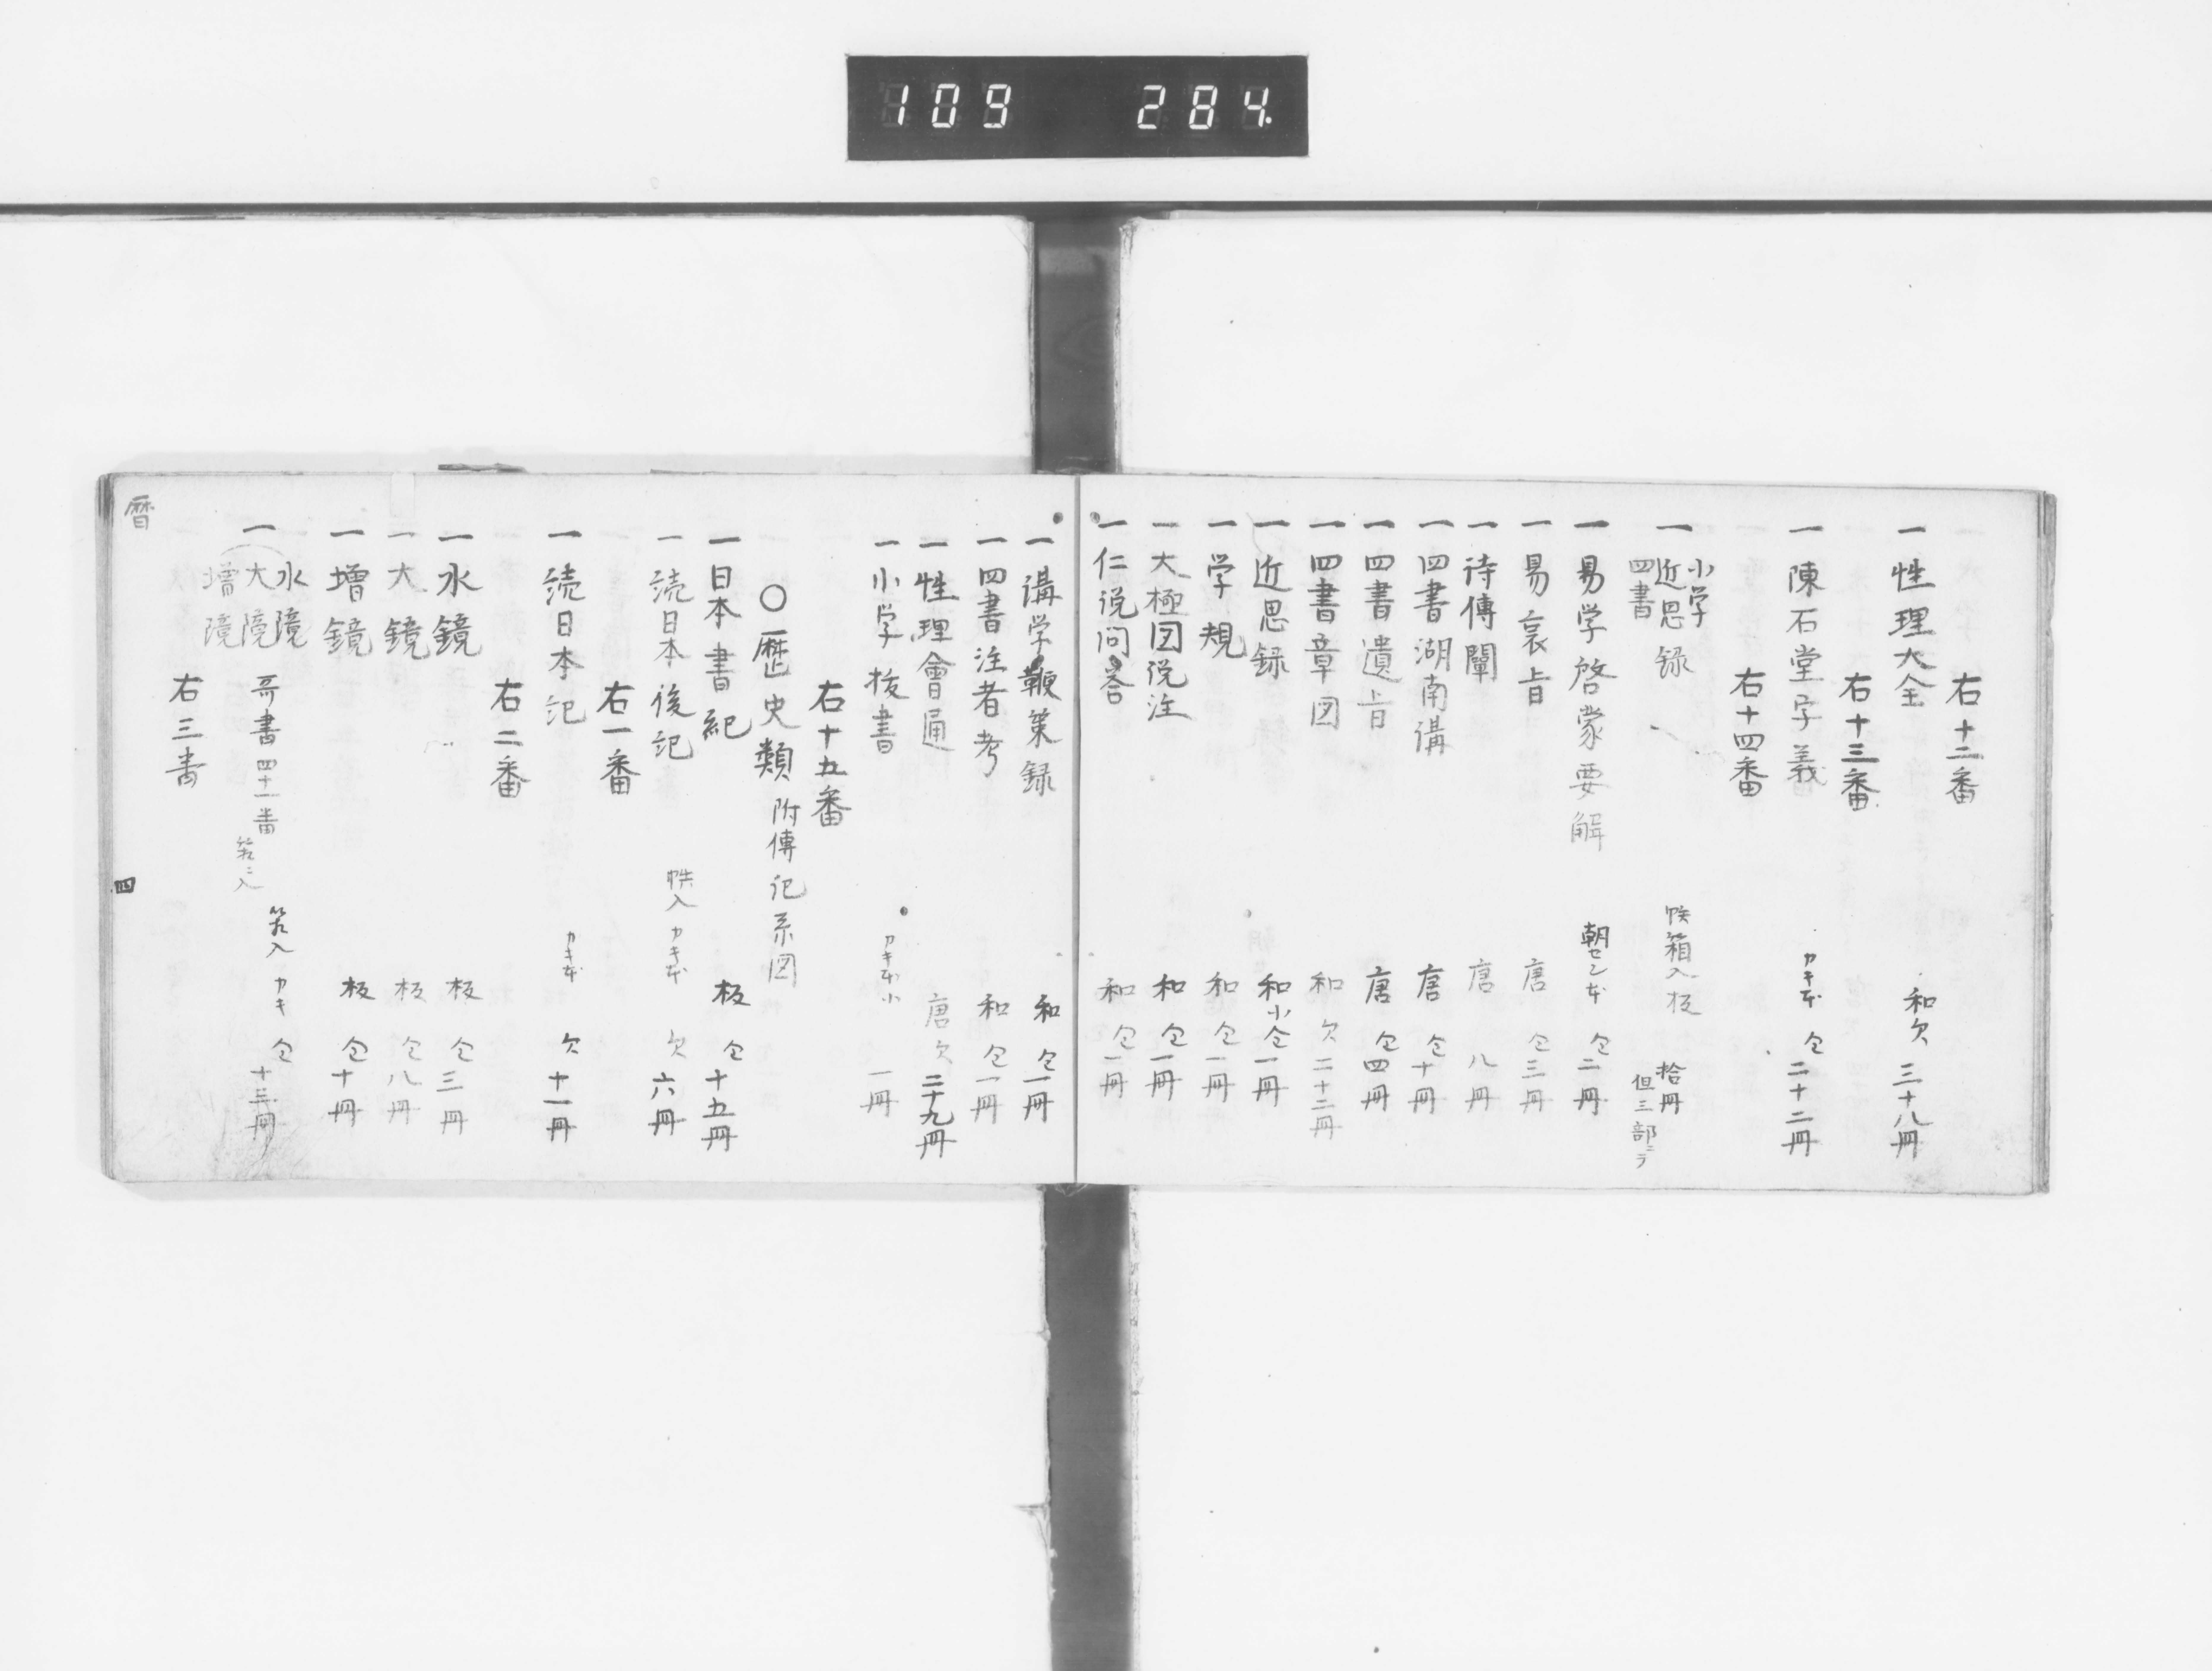 109 284.
右十二番
一 性理大全 和欠 三十八冊
右十三番
一 陳石堂字義 カキ本 仝 二十二冊
右十四番
小学
一 近思録 帙箱入板 拾冊
四書 但三部ニテ
一 易学啓蒙要解 朝セン本 仝 二冊
一 易裒旨 唐 仝 三冊
一 待傳闡 唐 八冊
一 四書湖南講 唐 仝 十冊
一 四書遺旨 唐 仝 四冊
一 四書章図 和 欠 二十二冊
一 近思録 和小 仝 一冊
一 学規 和 仝 一冊
一 大極図説注 和 仝 一冊
一 仁説問答 和 仝 一冊
一 講学鞭策録 和 仝 一冊
一 四書注者考 和 仝 一冊
一 性理會通 唐 欠 二十九冊
一 小学抜書 カキ本小 一冊
右十五番
○歴史類 附傳記系図
一 日本書紀 板 仝 十五冊
一 続日本後記 帙入 カキ本 欠 六冊
右一番
一 続日本記 カキ本 欠 十一冊
右二番
一 水鏡 板 仝 三冊
一 大鏡 板 仝 八冊
一 増鏡 板 仝 十冊
水鏡
一 大鏡 哥書四十一番 筥入 カキ 仝 十三冊
増鏡 筥ニ入
右三番
暦
四